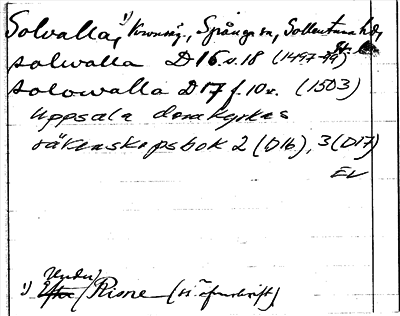 Solvalla,¹) Kronäg., Spånga sn, Sollentuna hd,
St. län
solwalla D16 s. 18 (1497-99)
solowalla D17 f. 10 v. (1503)
Uppsala domkyrkas
räkenskapsbok 2 (D16), 3 (D17)
EV
Under
¹) Efter Risne (si överskrift)